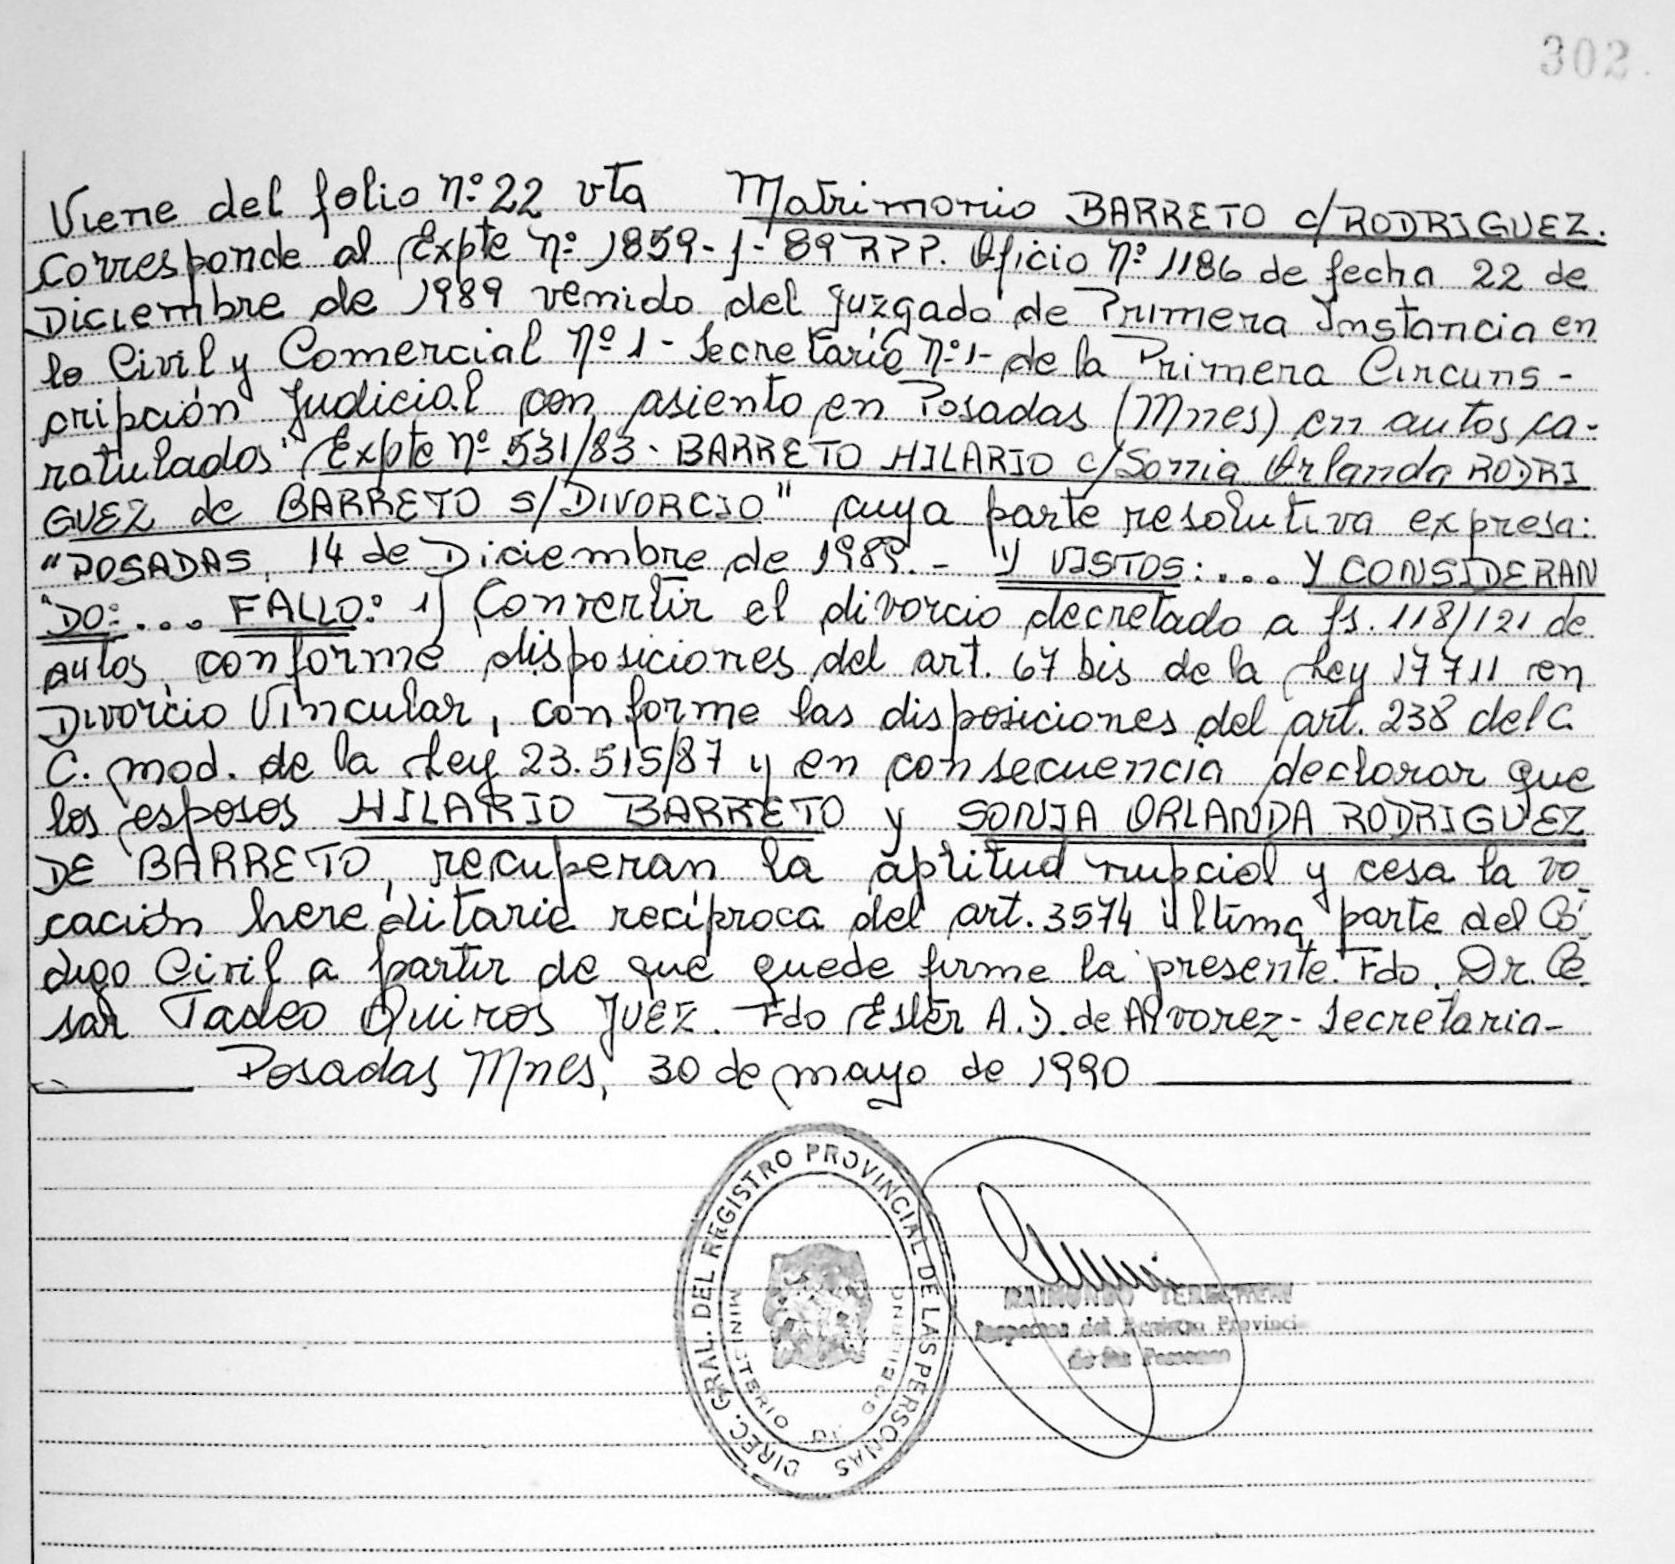 302.
Viene del folio Nº 22 vta Matrimonio BARRETO c/RODRIGUEZ.
Corresponde al Expte Nº 1859-J-89 RPP. Oficio Nº 1186 de fecha 22 de
Diciembre de 1989 venido del Juzgado de Primera Instancia en
lo Civil y Comercial Nº 1 - Secretaría Nº 1- de la Primera Circuns-
cripción Judicial con asiento en Posadas (Mnes) en autos ca-
ratulados "Expte Nº 531/83 - BARRETO HILARIO c/Sonia Orlanda RODRI
GUEZ de BARRETO S/DIVORCIO" cuya parte resolutiva expresa:
"POSADAS, 14 de Diciembre de 1989.- Y VISTOS:.... Y CONSIDERAN
DO:.... FALLO: 1) Convertir el divorcio decretado a fs. 118/121 de
autos, conforme disposiciones del art. 67 bis de la Ley 17711 en
Divorcio Vincular, conforme las disposiciones del art. 238 del C.
C. mod. de la Ley 23.515/87 y en consecuencia declarar que
los esposos HILARIO BARRETO y SONIA ORLANDA RODRIGUEZ
DE BARRETO, recuperan la aptitud nupcial y cesa la vo-
cación hereditaria recíproca del art. 3574 última parte del Có-
digo Civil a partir de que quede firme la presente. Fdo. Dr. Cé-
sar Tadeo Quiros JUEZ. Fdo Ester A. D. de Alvarez - Secretaria-
Posadas Mnes, 30 de mayo de 1990
DIREC. GRAL. DEL REGISTRO PROVINCIAL DE LAS PERSONAS
MINISTERIO DE GOBIERNO
RAIMUNDO
Inspector del Registro Provincial
de las Personas